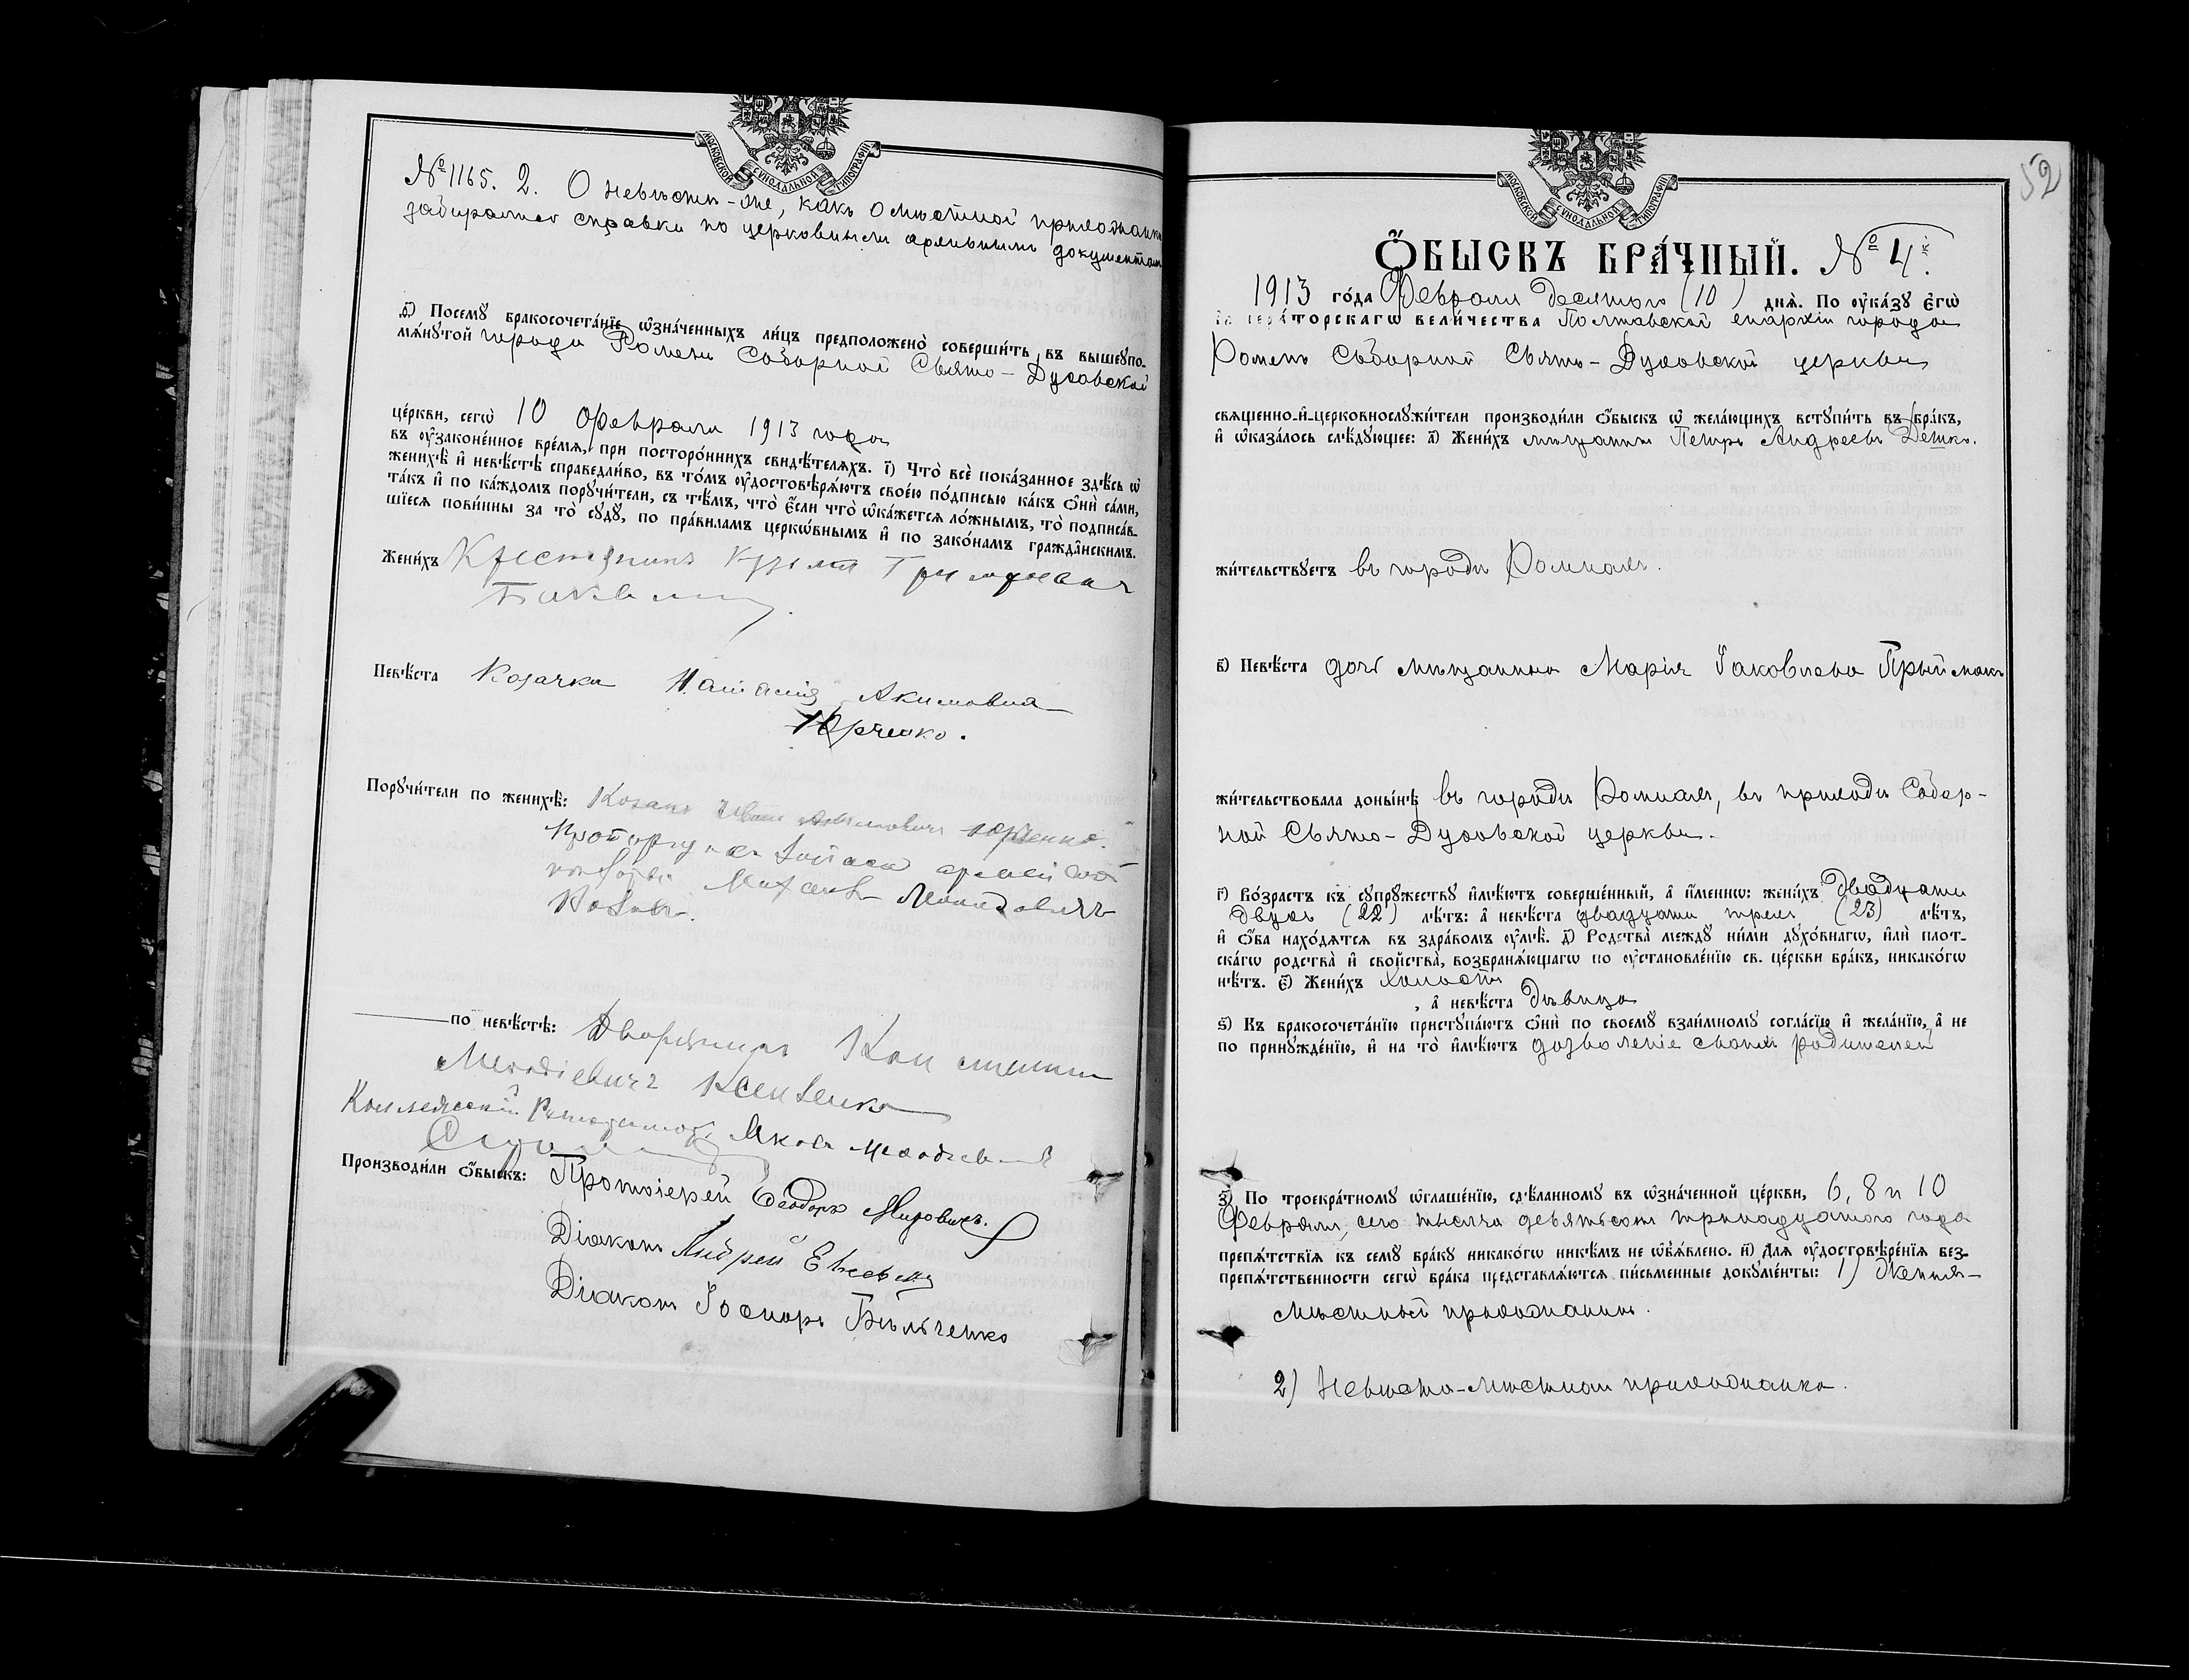 МОСКОВСКОЙ СѴНОДАЛЬНОЙ ТИПОГРАФІИ
№ 1165. 2. О невѣстѣ-же, какъ о мѣстной прихожанкѣ
забирались справки по церковнымъ архивнымъ документам
ѳ҃) Посемꙋ бракосочета́нїе ѡ҆зна́ченныхъ ли́цъ предположено̀ соверши́ть въ вышеꙋпо-
мѧ́нꙋтой города Ромень Соборной Свято-Духовской
це́ркви, сегѡ̀ 10 Февраля 1913 года
въ ᲂу҆законе́нное вре́мѧ, при посторо́ннихъ свидѣ́телѧхъ. і҃) Что̀ всѐ пока́занное здѣ́сь ѡ҆
женихѣ̀ и҆ невѣ́стѣ справедли́во, въ то́мъ ᲂу҆достовѣрѧ́ютъ свое́ю по́дписью ка́къ ѻ҆нѝ са́ми,
та́къ и҆ по ка́ждомъ порꙋчи́тели, съ тѣ́мъ, что̀ є҆́сли что̀ ѡ҆ка́жетсѧ ло́жнымъ, то̀ подписа́в-
шїесѧ пови́нны за то̀ сꙋдꙋ̀, по пра́виламъ церко́внымъ и҆ по зако́намъ гражда́нскимъ.
Жени́хъ Крестянинъ Кузьма
Невѣ́ста Козачка Наталія Акимовна
Юрченко.
Порꙋчи́тели по женихѣ̀: Козакъ Иванъ Акимовичъ Юрченко.
запаса армейской
Леонидовичъ
по невѣ́стѣ: Дворянинъ
Меѳодіевичъ Ксензенко
Коллежскій Регистраторъ Яковъ
Производи́ли ѻ҆́быскъ: Протоіерей Ѳеодоръ
Діаконъ Андрей
Діаконъ Іосифъ Бѣльченко
52
МОСКОВСКОЙ СѴНОДАЛЬНОЙ ТИПОГРАФІИ
Ѻ҆́БЫСКЪ БРА́ЧНЫЙ. № 4й.
1913 го́да Февраля десятого (10) днѧ̀. По ᲂу҆ка́зꙋ Є҆гѡ̀
И҆мпера́торскагѡ вели́чества Полтавской епархіи города
Роменъ Соборной Свято-Духовской церкви
свѧще́нно-и҆-церковнослꙋжи́тели производи́ли ѻ҆́быскъ ѡ҆ жела́ющихъ встꙋпи́ть въ бра́къ,
и҆ ѡ҆каза́лось слѣ́дꙋющее: а҃) Жени́хъ мѣщанинъ Петръ Андреевъ Детко.
жи́тельствꙋетъ въ городѣ Ромнахъ.
в҃) Невѣ́ста дочь мѣщанина Марія Іаковлева Прыймакъ
жи́тельствовала доны́нѣ въ городѣ Ромнахъ, въ приходѣ Собор-
ной Свято-Духовской церкви.
г҃) Во́зрастъ къ сꙋпрꙋ́жествꙋ и҆мѣ́ютъ соверше́нный, а҆ и҆́менно: жени́хъ двадцати
двухъ (22) лѣ́тъ: а҆ невѣ́ста двадцати трехъ (23) лѣ́тъ,
и҆ ѻ҆́ба нахо́дѧтсѧ въ здра́вомъ ᲂу҆мѣ̀. д҃) Родства̀ междꙋ ни́ми дꙋхо́внагѡ, и҆лѝ плот-
ска́гѡ родства̀ и҆ сво́йства̀, возбранѧ́ющагѡ по ᲂу҆становле́нїю св. це́ркви бра́къ, никако́гѡ
нѣ́тъ. є҃) Жени́хъ холостъ
, а҆ невѣ́ста дѣвица
ѕ҃) Къ бракосочета́нїю пристꙋпа́ютъ ѻ҆нѝ по своемꙋ̀ взаи́мномꙋ согла́сїю и҆ жела́нїю, а҆ не
по принꙋжде́нїю, и҆ на то̀ и҆мѣ́ютъ дозволеніе своихъ родителей
з҃) По троекра́тномꙋ ѡ҆глаше́нїю, сдѣ́ланномꙋ въ ѡ҆зна́ченной це́ркви, 6, 8 и 10
Февраля, сего тысяча девятьсотъ тринадцатого года
препѧ́тствїѧ къ семꙋ̀ бра́кꙋ никако́гѡ никѣ́мъ не ѡ҆б̾ѧ́влено. и҃) Длѧ ᲂу҆достовѣре́нїѧ без-
препѧ́тственности сегѡ̀ бра́ка представлѧ́ютсѧ пи́сьменные докꙋме́нты: 1) Женихъ-
мѣстный прихожанинъ.
2) Невѣста-мѣстная прихожанка.